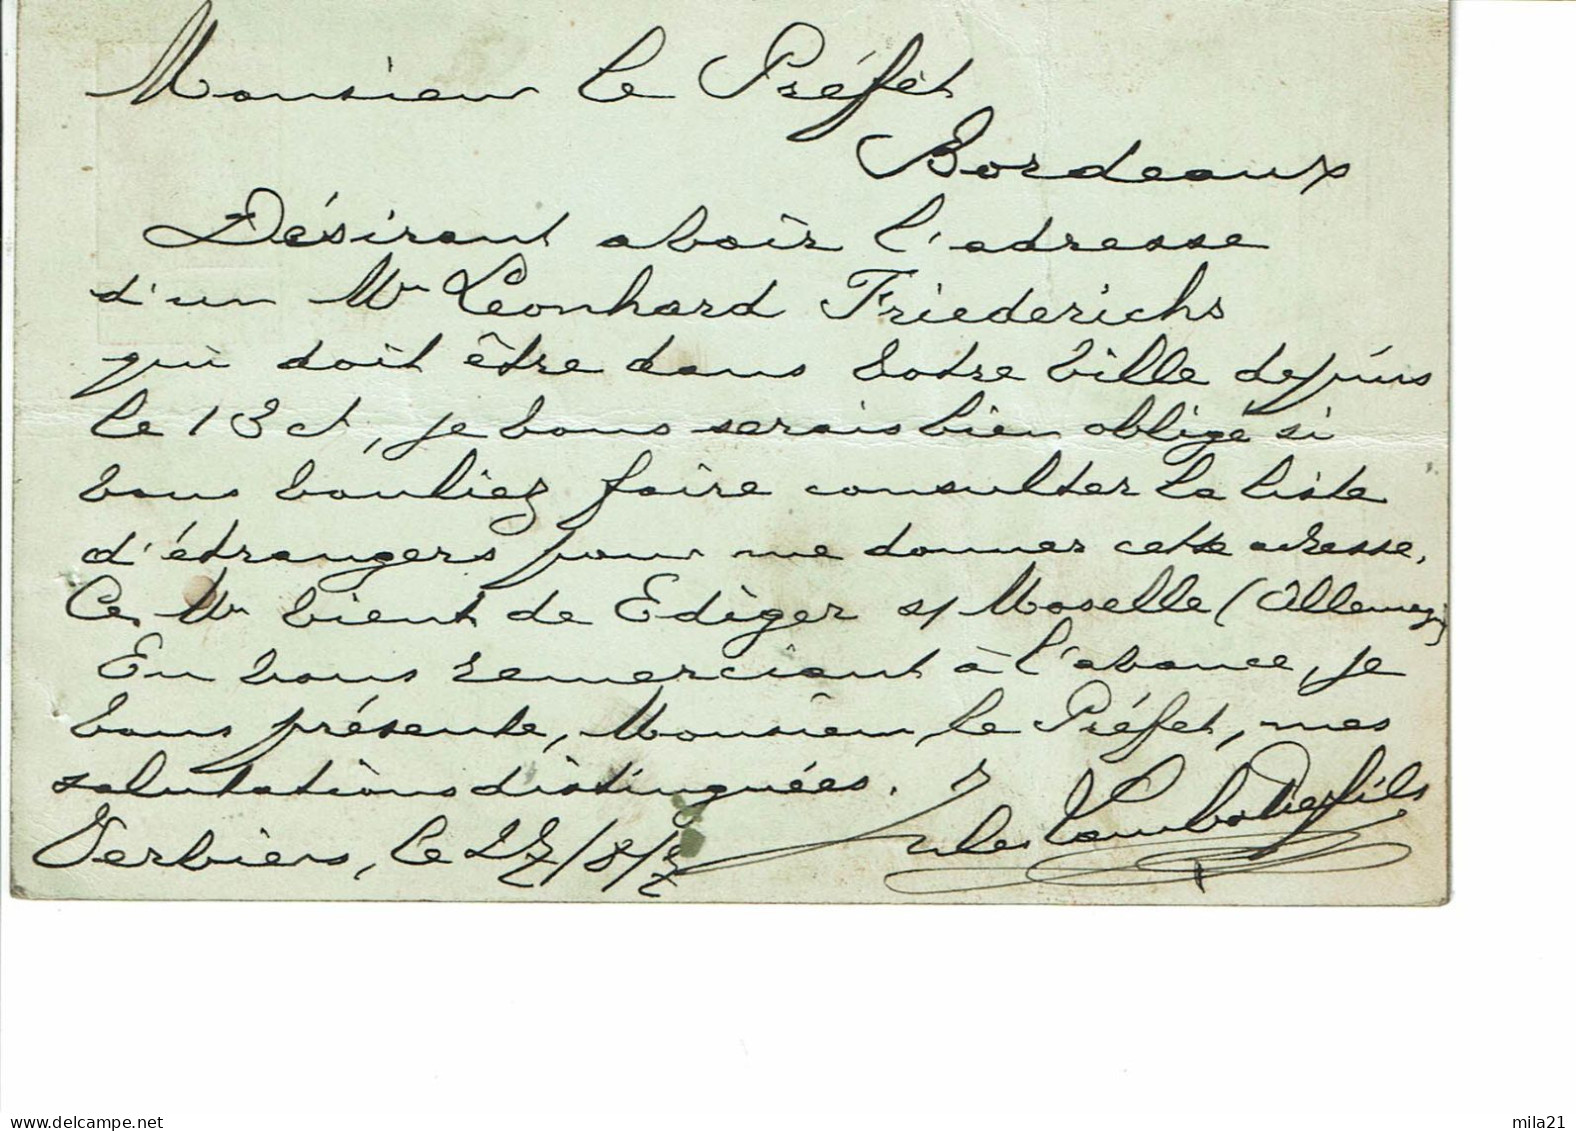 Monsieur le Préfet
Bordeaux
Désirant avoir l'adresse
d'un Mr Leonhard Friederichs
qui doit être dans votre ville depuis
le 13 ct, je vous serais bien obligé si
vous vouliez faire consulter la liste
d'étrangers pour me donner cette adresse.
Ce Mr vient de Ediger s/ Moselle (Allemag)
En vous remerciant à l'avance, je
vous présente, Monsieur le Préfet, mes
salutations distinguées.
Jules fils
le 27/8/
delcampe.net
mila21